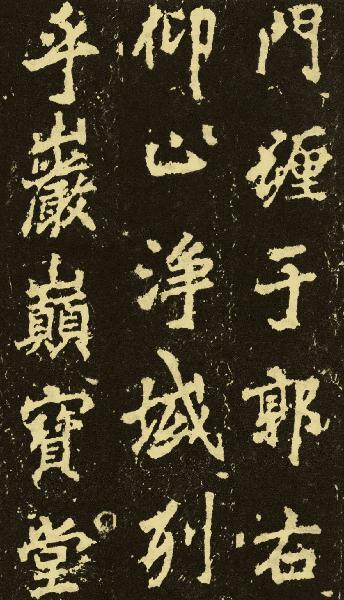 門于郭右
仰止淨域列
乎巖巔寶堂